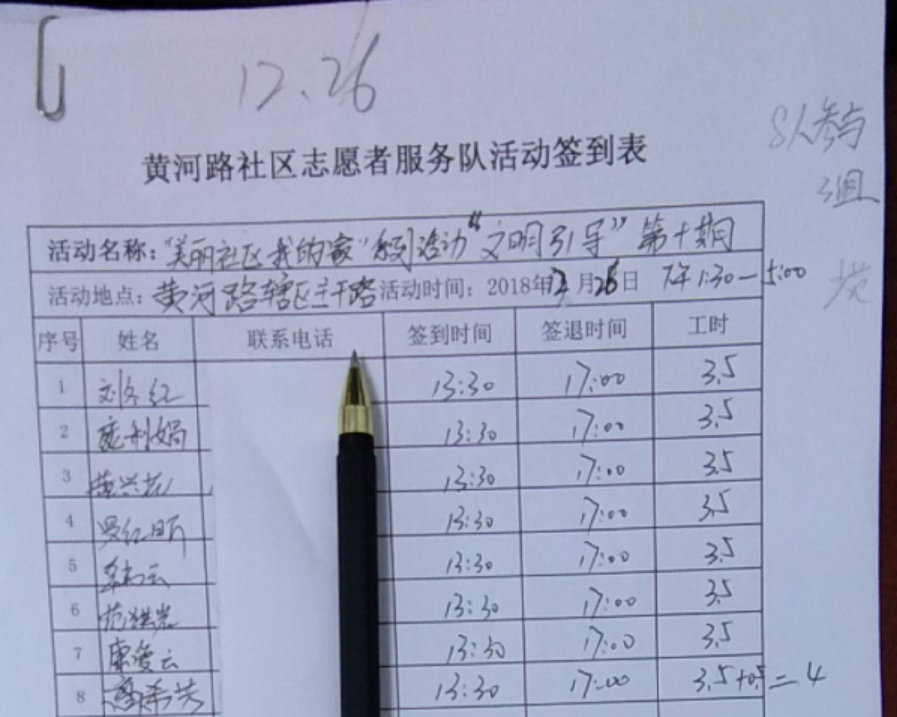 12.26
8人参与
3组
黄河路社区志愿者服务队活动签到表
活动名称："美丽社区我的家"系列活动"文明引导"第十期
活动地点：黄河路辖区主干路 活动时间：2018年12月26日 下午1:30—5:00
序号 姓名 联系电话 签到时间 签退时间 工时
1 刘冬红 13:30 17:00 3.5
2 庞利娟 13:30 17:00 3.5
3 13:30 17:00 3.5
4 罗红昕 13:30 17:00 3.5
5 13:30 17:00 3.5
6 13:30 17:00 3.5
7 康爱云 13:30 17:00 3.5
8 13:30 17:00 3.5+0.5=4